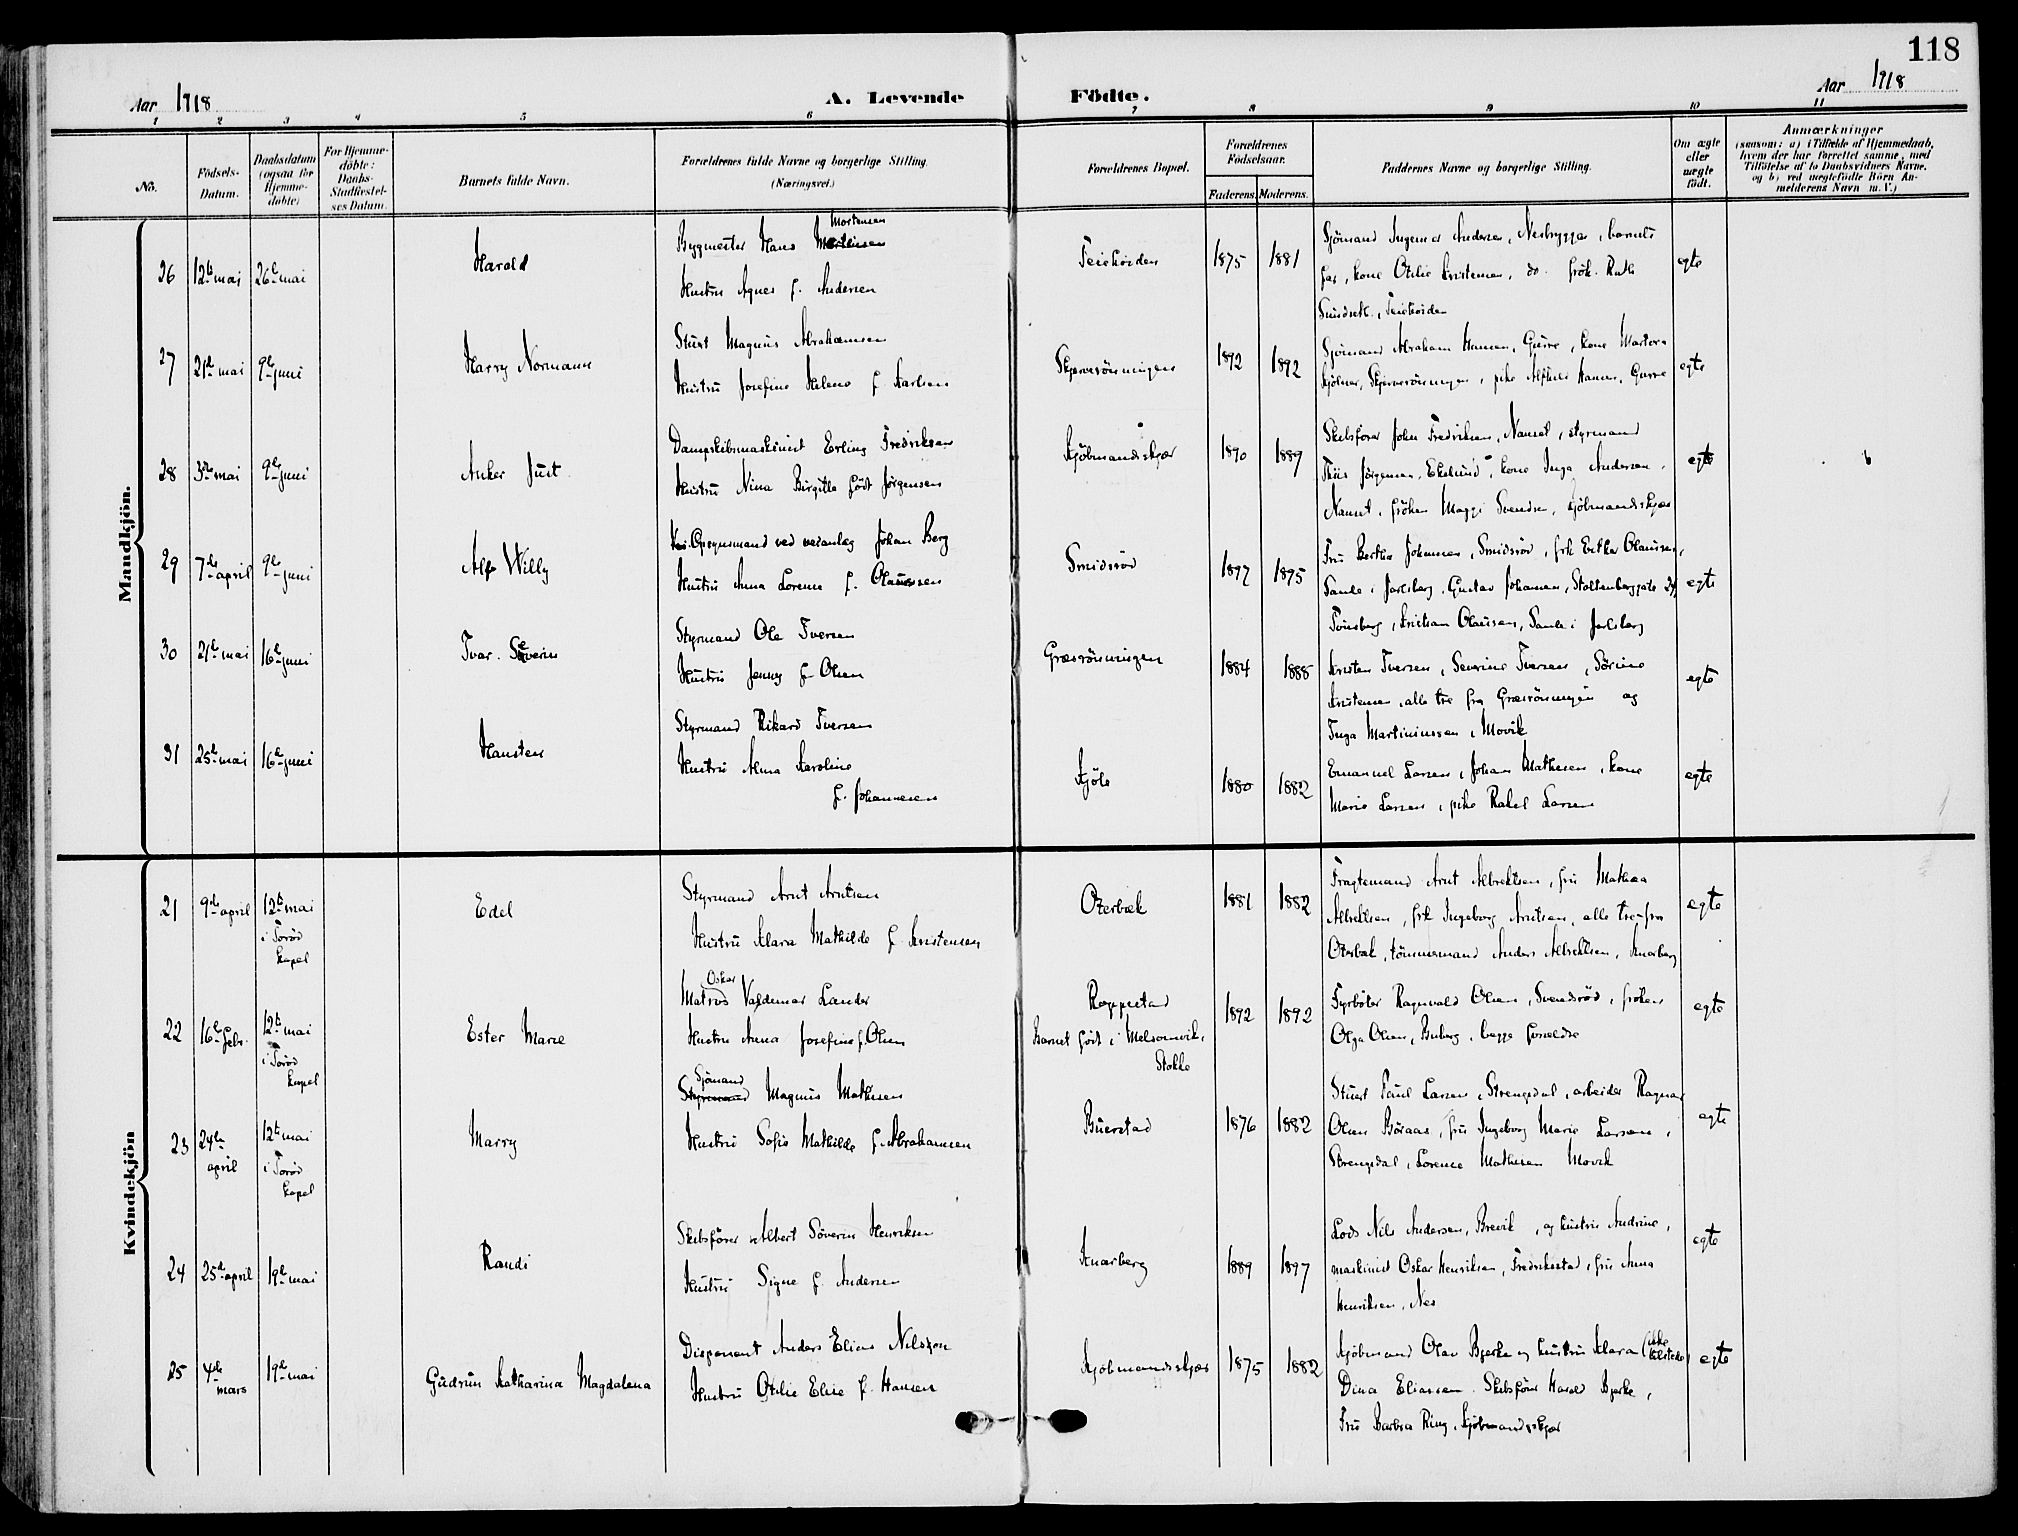 118
Aar 1918
A. Levende Födte.
Aar 1918
1 2 3 4 5 6 7 8 9 10 11
No.
Födsels-Datum.
Daabsdatum (ogsaa for Hjemme-döbte)
For Hjemme-döbte: Daabs-Stadfæstel-ses Datum.
Barnets fulde Navn.
Forældrenes fulde Navne og borgerlige Stilling.
(Næringsvei.)
Forældrenes Bopæl.
Forældrenes Födselsaar.
Faderens. Moderens.
Faddernes Navne og borgerlige Stilling.
Om ægte eller uægte födt.
Anmærkninger
(saasom: a) i Tilfælde af Hjemmedaab,
hvem der har forrettet samme, med
Tilföielse af to Daabsvidners Navne.
og b) ved uægtefödte Börn An-
melderens Navn m. V.)
Mandkjön.
26 12te mai 26de mai Harald
Bygmester Hans Mortensen
Hustru Agnes f. Andersen
Teiehöiden 1875 1881
Sjömand Ingemar Andersen, Nesbrygga, barnets
far, kone Otilie Kristensen, do. frök. Ruth
Sundseth, Teiehöiden
egte
27 21de mai 9de juni Harry Normann
Stuert Magnus Abrahamsen
Hustru Josefine Helene f. Karlsen
Skjerverönningen 1892 1892
Sjömand Abraham Hansen, Gurre, kone
Skjerverönningen, pike Hansen, Gurre
egte
28 3die mai 9de juni Anker Just
Dampskibsmaskinist Erling Fredriksen
Hustru Nina Birgitte födt Jörgensen
Kjöbmandskjær 1890 1889
Skibsförer John Fredriksen, Nauset, styrmand
Thiis Jörgensen, Ekelund, kone Inga Andersen,
Nauset, fröken Maggi Svendsen, Kjöbmandskjær
egte
29 7de april 9de juni Alf Willy
Opsynsmand ved veianlæg Johan Berg
Hustru Anna Lorense f. Olaussen
Smidsröd 1897 1895
Fru Bertha Johannesen, Smidsröd, frk Olaussen,
Sande i Jarlsberg, Gustav Johansen, Stoltenberggate 24
Tönsberg, Kristian Olaussen, Sande i Jarlsberg
egte
30 21de mai 16de juni Ivar Severin
Styrmand Ole Iversen
Hustru Jenny f. Olsen
Græsrönningen 1884 1888
Kristen Iversen, Severine Iversen, Sörine
Kristensen, alle tre fra Græsrönningen og
Inga Martiniussen, Movik
egte
31 25de mai 16de juni Hansten
Styrmand Rikard Iversen
Hustru Alma Karoline
f. Johannesen
Kjöle 1880 1882
Emanuel Larsen, Johan Mathisen, kone
Marie Larsen, pike Rakel Larsen
egte
Kvindekjön
21 9de april 12te mai
i Toröd
kapel
Edel
Styrmand Arnt Arntsen
Hustru Klara Mathilde f. Kristensen
Oterbæk 1881 1882
Fragtemand Arnt Albrektsen, fru Mathea
Albrektsen, frk Ingeborg Arntsen, alle tre fra
Oterbæk, tömmermand Anders Albrektsen, Knarberg
egte
22 16de febr. 12te mai
i Toröd
kapel
Ester Marie
Oskar
Matros Valdemar Lander
Hustru Anna Josefine f. Olsen
Ræppestad
Barnet födt i Melsomvik,
Stokke
1892 1892
Fyrböter Ragnvald Olsen, Svendsröd, fröken
Olga Olsen, Buberg, begge forældre
egte
23 24de april 12te mai
i Toröd
kapel
Marry
Sjömand
Styrmand Magnus Mathisen
Hustru Sofie Mathilde f. Abrahamsen
Buerstad 1876 1882
Stuert Paul Larsen, Strengsdal, arbeider Ragnar
Olsen Böraas, fru Ingeborg Marie Larsen,
Strengsdal, Lorense Mathisen Movik
egte
24 25de april 19de mai Randi
Skibsförer Albert Söverin Henriksen
Hustru Signe f. Andersen
Knarberg 1889 1897
Lods Nils Andersen, Brevik, og hustru Andrine,
maskinist Oskar Henriksen, Fredrikstad, fru Anna
Henriksen, Nes
egte
25 4de mars 19de mai Gudrun Katharina Magdalena
Disponent Anders Elias Nilsson
Hustru Otilie Elise f. Hansen
Kjöbmandsskjær 1875 1882
Kjöbmand Olav Bjerke og hustru Klara (ikke tilstede)
Dina Eliassen. Skibsförer Harald Bjerke,
Fru Barbra Ring, Kjöbmandsskjær
egte